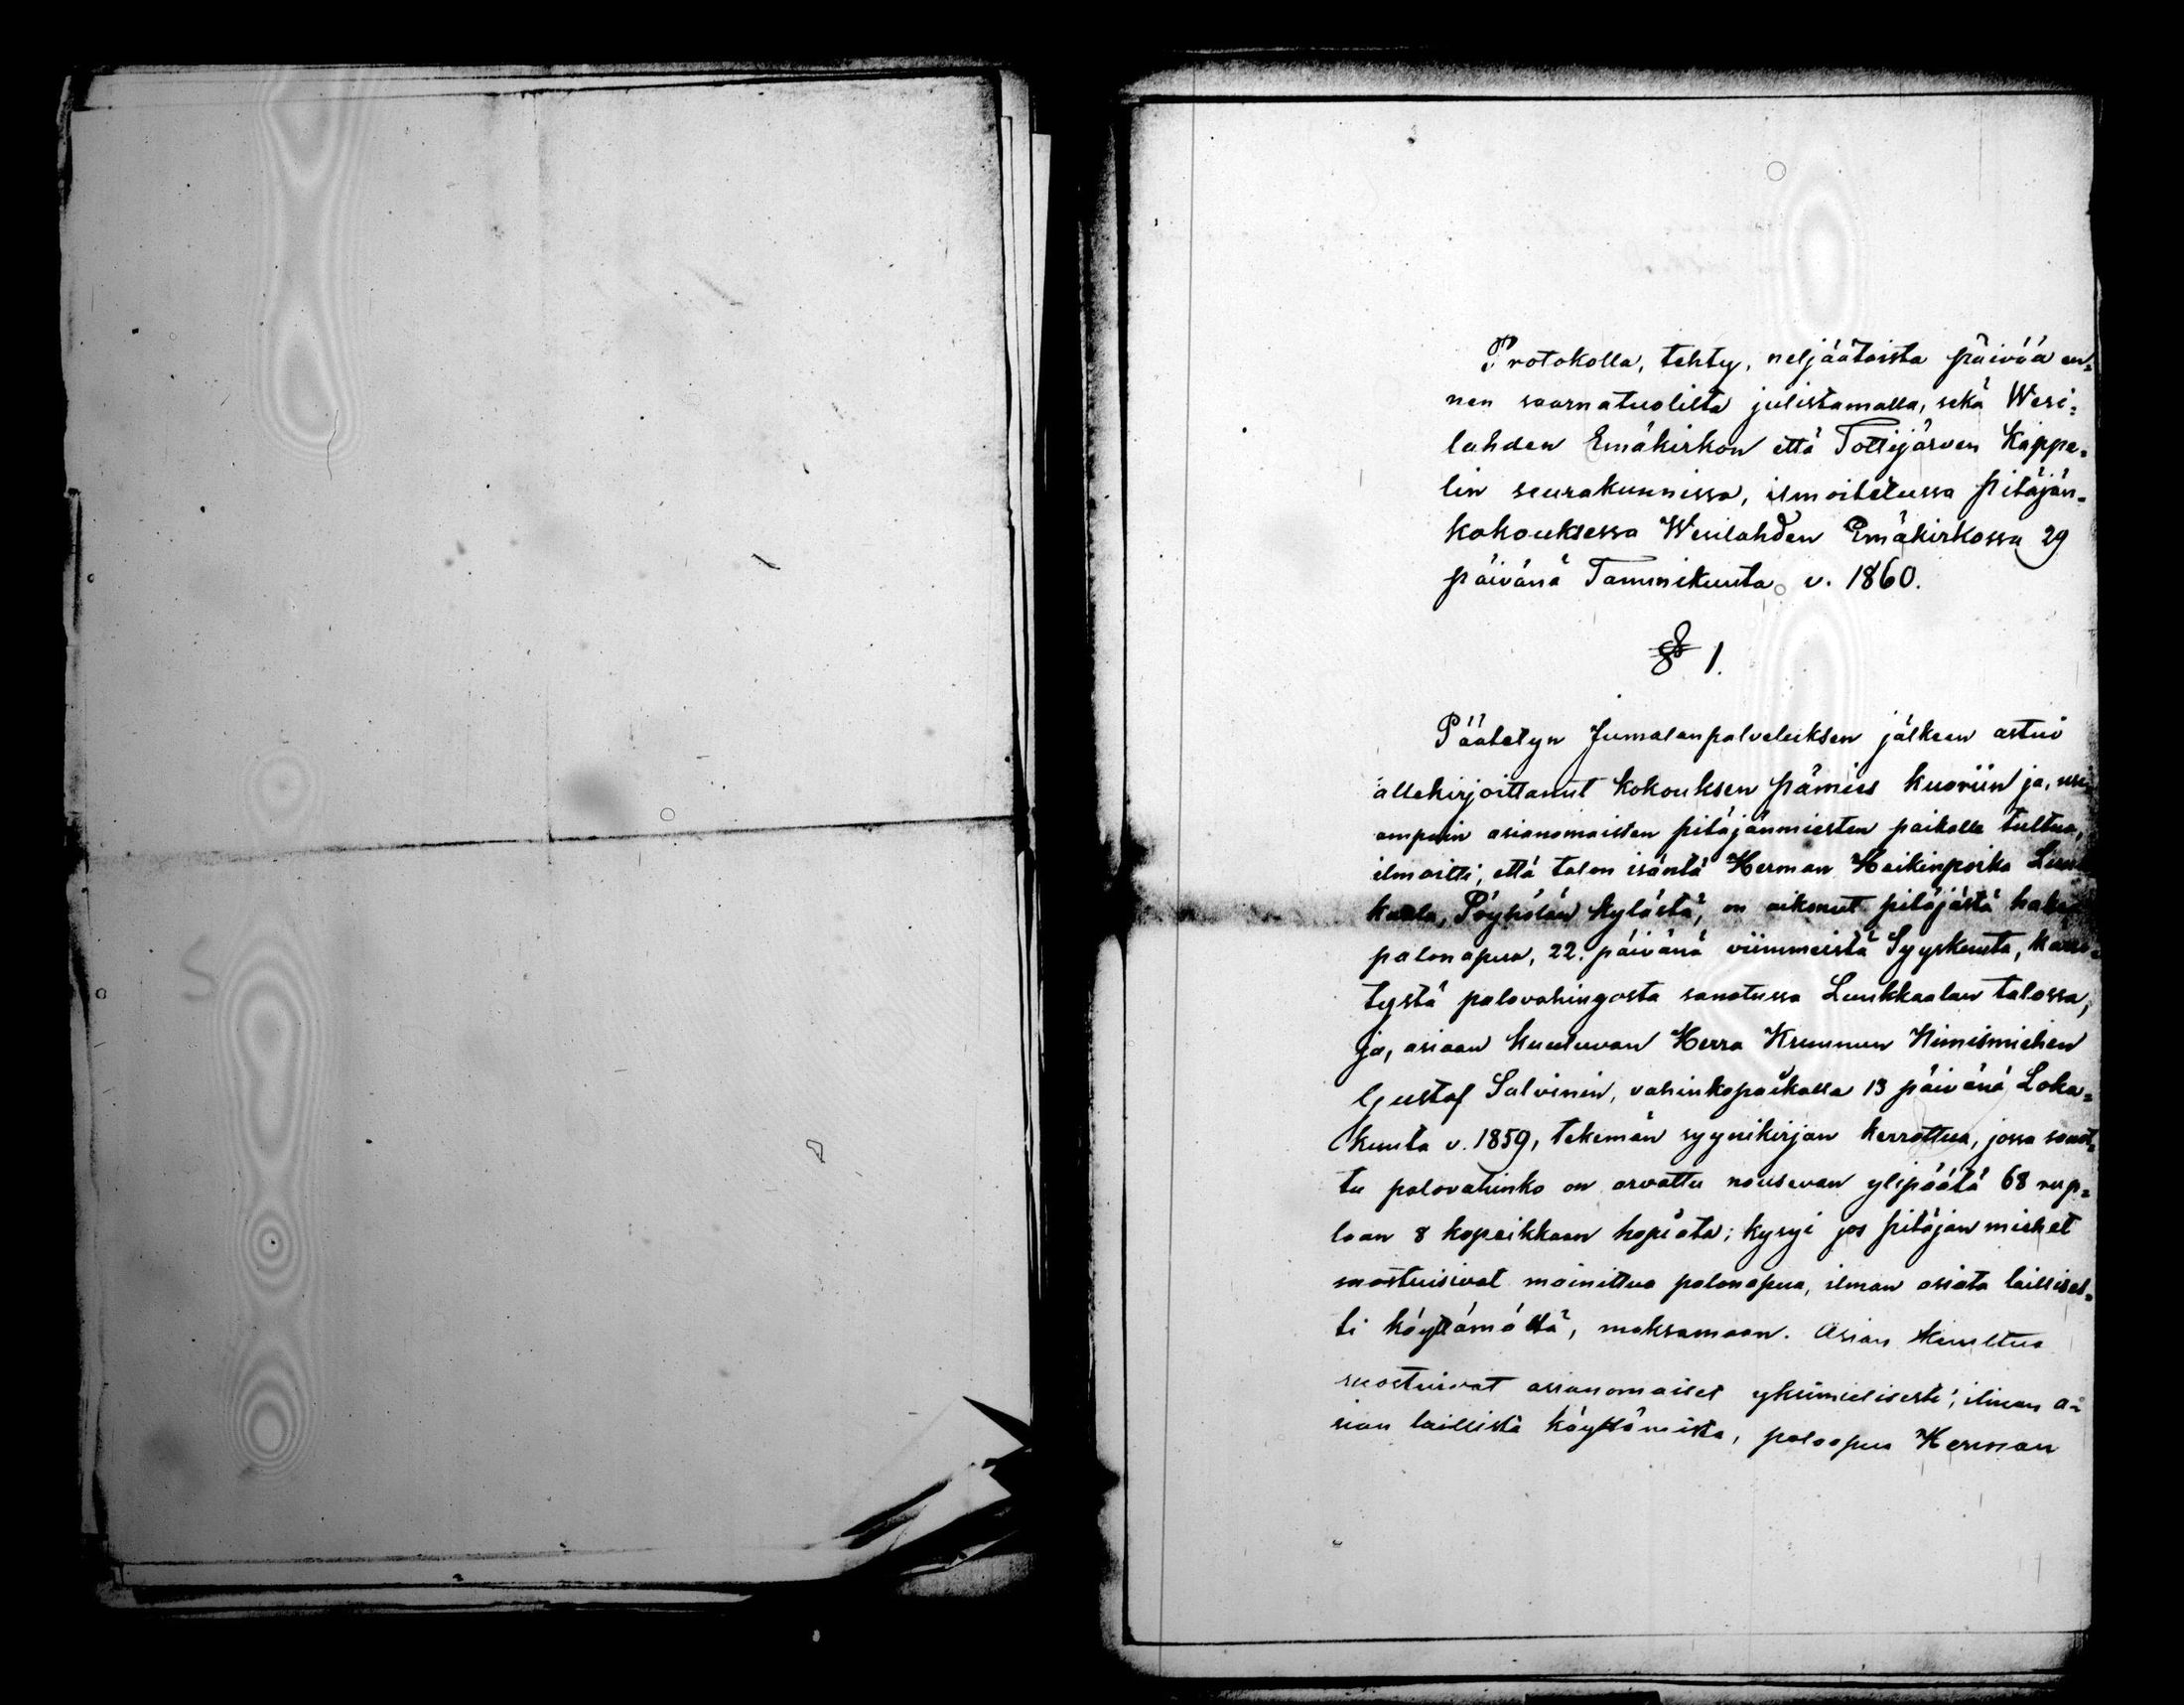 Protokolla, tehty, neljäätoista päivää en=
nen saarnatuolilta julistamalla, sekä Wesi=
lahden Emäkirkon että Tottijärven Kappe=
lin seurakunnissa, ilmoitetussa pitäjän=
kokouksessa Wesilahden Emäkirkossa 29
päivänä Tammikuuta v. 1860.
§ 1.
Päätetyn Jumalanpalveluksen jälkeen astui
allekirjoittanut kokouksen pämies kuoriin ja, usi
ampain asianomaisten pitäjänmiesten paikalle tultua,
ilmoitti, että talon isäntä Herman Heikinpoika Luuk
kaala, Pöyhölän kylästä, on aikonut pitäjästä hakea
palonapua, 22. päivänä viimmeistä Syyskuuta,
tystä palovahingosta sanotussa Luukkaalan talossa,
ja, asiaan kuuluvan Herra Kruunun Nimismiehen
Gustaf Salvinin, vahinkopaikalla 13 päivänä Loka=
kuuta v. 1859, tekemän syynikirjan kerrottua, jossa sanot=
tu palovahinko on arvattu nousevan ylipäätä 68 rup=
laan 8 kopeikkaan hopiata; kysyi jos pitäjän miehet
suostuisivat mainittua palonapua, ilman asiata lailises=
ti käyttämättä, maksamaan. Asian kuultua
suostuivat asianomaiset yksimielisesti, ilman a=
sian laillista käyttämistä, paloapua Herman